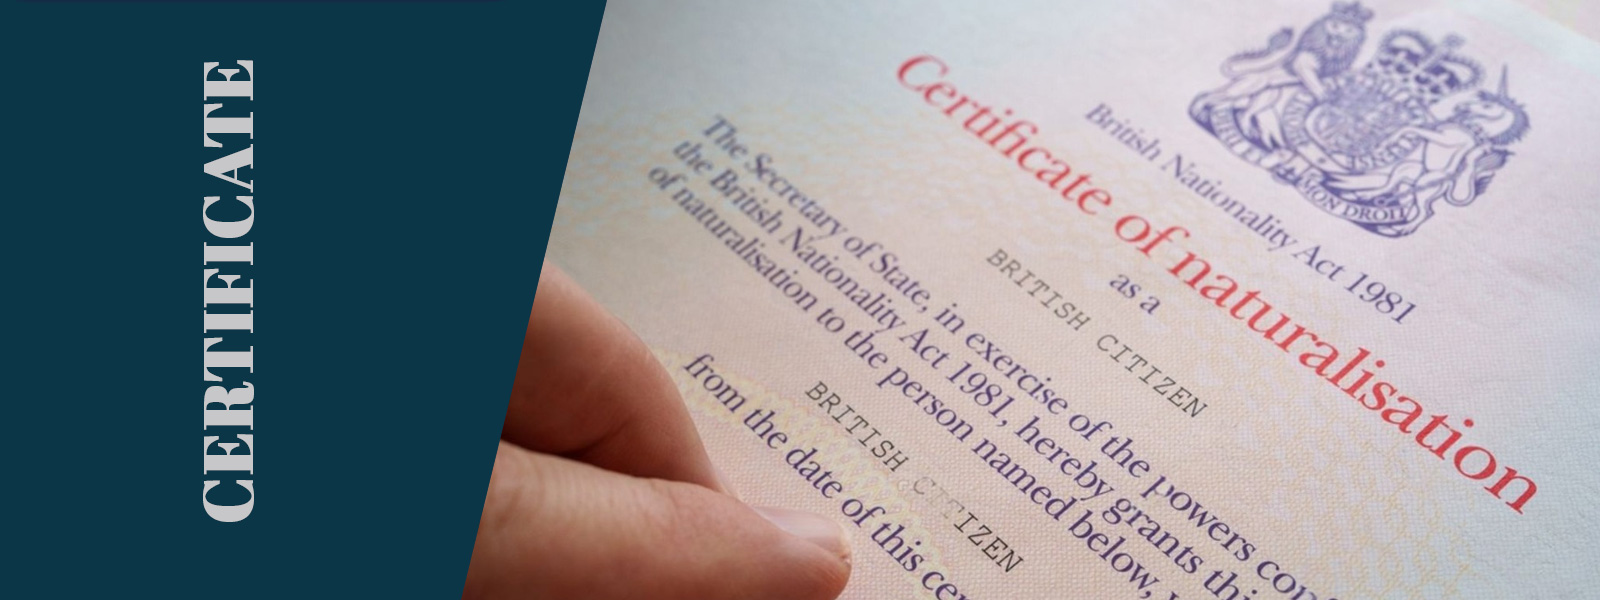 CERTIFICATE
DIEU ET MON DROIT
British Nationality Act 1981
Certificate of naturalisation
as a
BRITISH CITIZEN
The Secretary of State, in exercise of the powers
the British Nationality Act 1981, hereby grants
of naturalisation to the person named below,
BRITISH CITIZEN
from the date of this